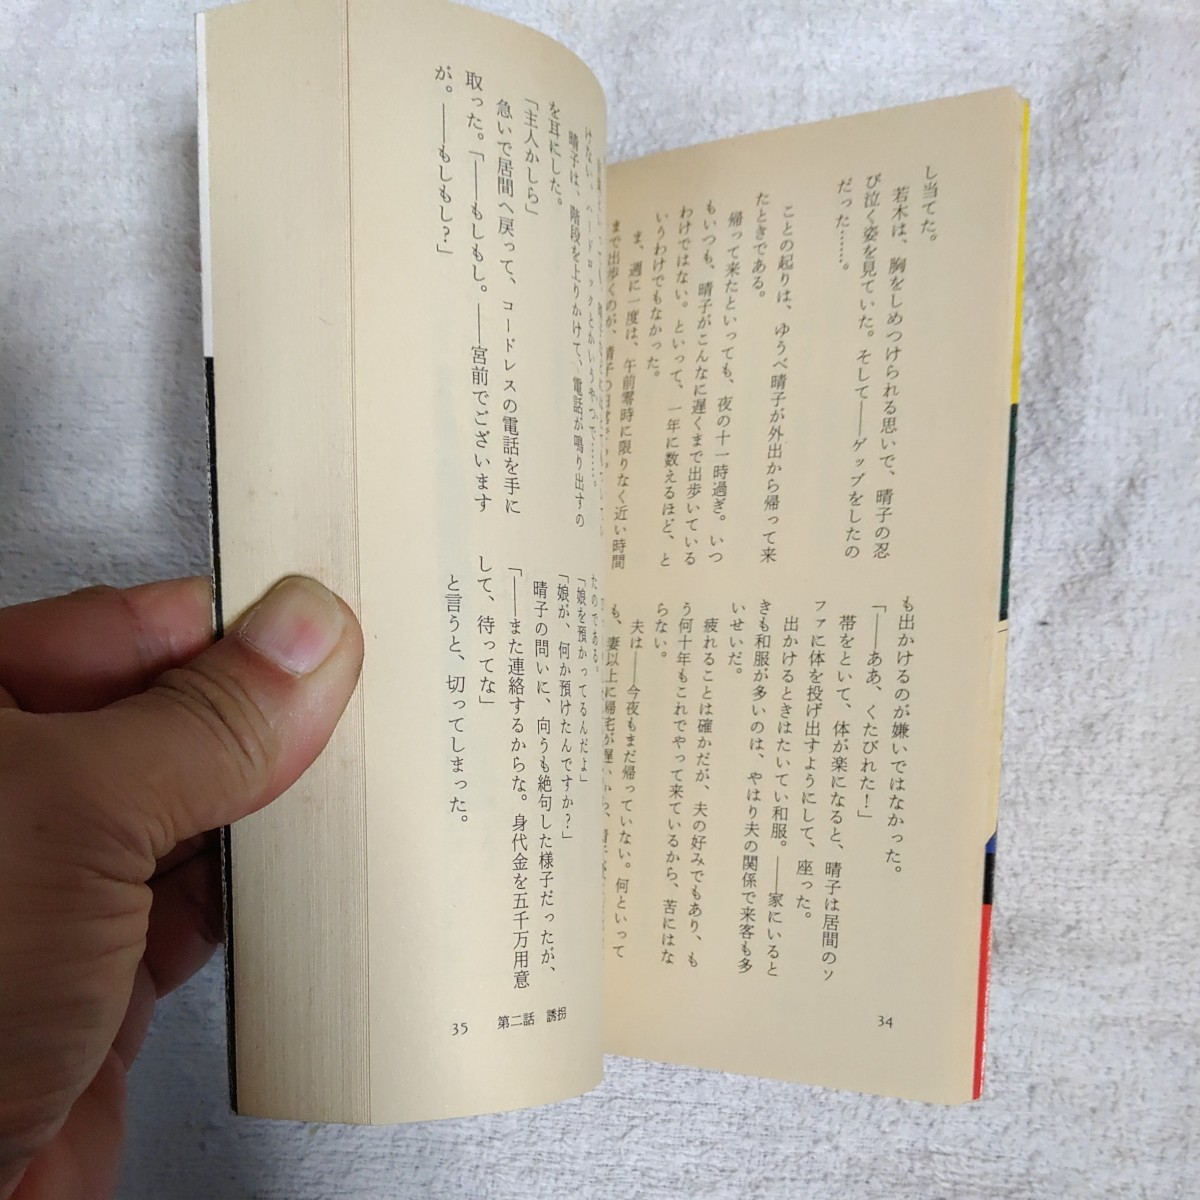 し当てた。
若木は、胸をしめつけられる思いで、晴子の忍
び泣く姿を見ていた。そして――ゲップをしたの
だった……。
ことの起りは、ゆうべ晴子が外出から帰って来
たときである。
帰って来たといっても、夜の十一時過ぎ。いつ
もいつも、晴子がこんなに遅くまで出歩いている
わけではない。といって、一年に数えるほど、と
いうわけでもなかった。
ま、週に一度は、午前零時に限りなく近い時間
まで出歩くのが、晴子の日常
も出かけるのが嫌いではなかった。
「――ああ、くたびれた!」
帯をといて、体が楽になると、晴子は居間のソ
ファに体を投げ出すようにして、座った。
出かけるときはたいてい和服。――家にいると
きも和服が多いのは、やはり夫の関係で来客も多
いせいだ。
疲れることは確かだが、夫の好みでもあり、も
う何十年もこれでやって来ているから、苦にはな
らない。
夫は――今夜もまだ帰っていない。何といって
も、妻以上に帰宅が遅いから、
34
けない。ハードロックとかいうやつで……。
晴子は、階段を上りかけて、電話が鳴り出すの
を耳にした。
「主人かしら」
急いで居間へ戻って、コードレスの電話を手に
取った。「――もしもし。――宮前でございます
が。――もしもし?」
たのである。
「娘を預かってるんだよ」
「娘が、何か預けたんですか?」
晴子の問いに、向うも絶句した様子だったが、
「――また連絡するからな。身代金を五千万用意
して、待ってな」
と言うと、切ってしまった。
35 第二話 誘拐